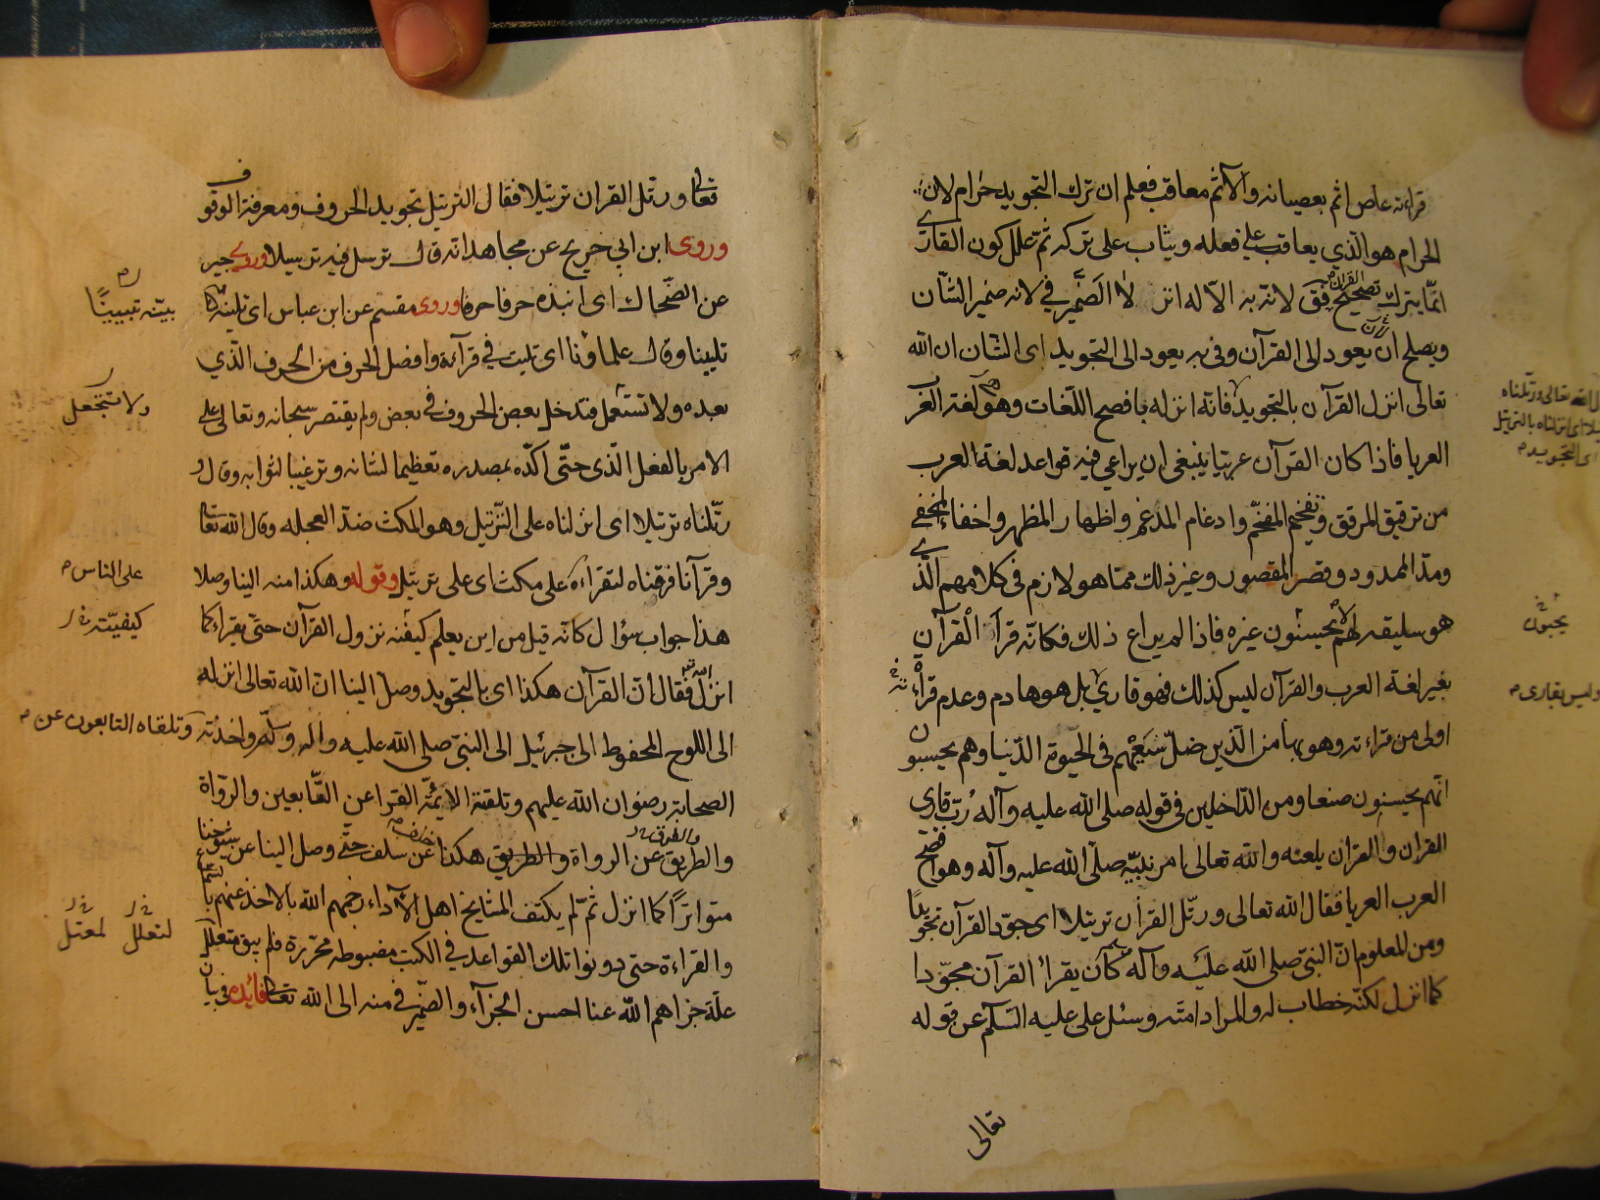 قراءته عاص اثم بعصيانه والآثم معاقب فعلم ان ترك التجويد حرام لان
الحرام هو الذي يعاقب على فعله ويثاب على تركه ثم علل كون القارئ
انما يترك تصحيح القرآن لانه به الاله انزلا الضمير في لانه ضمير الشان
ويصلح ان يعود الى القرآن وفى به يعود الى التجويد اى الشان ان الله
تعالى انزل القرآن بالتجويد فانه انزله بافصح اللغات وهو لغة العرب
العربا فاذا كان القرآن عربيا ينبغى ان يراعى فيه قواعد لغة العرب
من ترقيق المرقق وتفخيم المفخم وادغام المدغم واظهار المظهر واخفاء المخفى
ومد الممدود وقصر المقصور وغير ذلك مما هو لازم فى كلامهم الذى
هو سليقه لهم لا يحسنون غيره فاذا لم يراع ذلك فكانه قرأ القرآن
بغير لغة العرب والقرآن ليس كذلك فهو قارئ بل هو هادم وعدم قراءته
اولى من قراءته وهو بها من الذين ضل سعيهم فى الحيوة الدنيا وهم يحسبون
انهم يحسنون صنعا ومن الداخلين فى قوله صلى الله عليه وآله رب قارى
القران والقران يلعنه والله تعالى امر نبيه صلى الله عليه وآله وهو افصح
العرب العربا فقال الله تعالى ورتل القرآن ترتيلا اى جود القرآن تجويدًا
ومن المعلوم ان النبى صلى الله عليه وآله كان يقرأ القرآن مجودا
كما انزل لكنه خطاب له والمراد امته وسئل على عليه السلام عن قوله
تعالى
الله تعالى ورتلناه
اى انزلناه بالترتيل
اى التجويد
يحبون
وليس بقارى
تعالى ورتل القران ترتيلا فقال الترتيل تجويد الحروف ومعرفة الوقوف
وروى ابن ابي جريح عن مجاهد انه قال ترسل فيه ترسيلا وروى جبير
عن الضحاك اى انبذه حرفا حرفا وروى مقسم عن ابن عباس اى
تلبينا وقال علماؤنا اى تلبث فى قرآءة وافصل الحرف من الحرف الذي
بعده ولا تستعمل فتدخل بعض الحروف فى بعض ولم يقتصر سبحانه وتعالى على
الامر بالفعل الذى حتى اكده بمصدره تعظيما لشانه وترغيبا لثوابه وقال و
رتلناه ترتيلا اى انزلناه على الترتيل وهو المكث ضد العجله وقال الله تعالى
وقرآنا فرقناه لتقراءه على مكث اى على ترتيل وقوله وهكذا منه الينا وصلا
هذا جواب سؤال كانه قيل من اين يعلم كيفته نزول القرآن حتى يقراء كما
انزل الله فقال ان القرآن هكذا اى بالتجويد وصل الينا ان الله تعالى انزله
الى اللوح المحفوظ الى جبرئيل الى النبى صلى الله عليه واله وسلم واخذته
الصحابة رضوان الله عليهم وتلقته الايمة القرا عن التابعين والرواة
والطريق عن الرواة والطريق هكذا عن سلف حتى وصل الينا عن شيوخنا
متواترًا كما انزل ثم لم يكتف المشايخ اهل الآداء رحمهم الله بالاخذ عنهم بالسماع
والقراءة حتى دونوا تلك القواعد فى الكتب مضبوطه محررة فلم يبق متعلل
علة جزاهم الله عنا احسن الجزآء والضمير فى منه الى الله تعالى فائده فى بيان
بينه تبيينًا
ولا تتجعل
على الناس
كيفيته
وتلقاه التابعون عن
لتعلل لمعتل